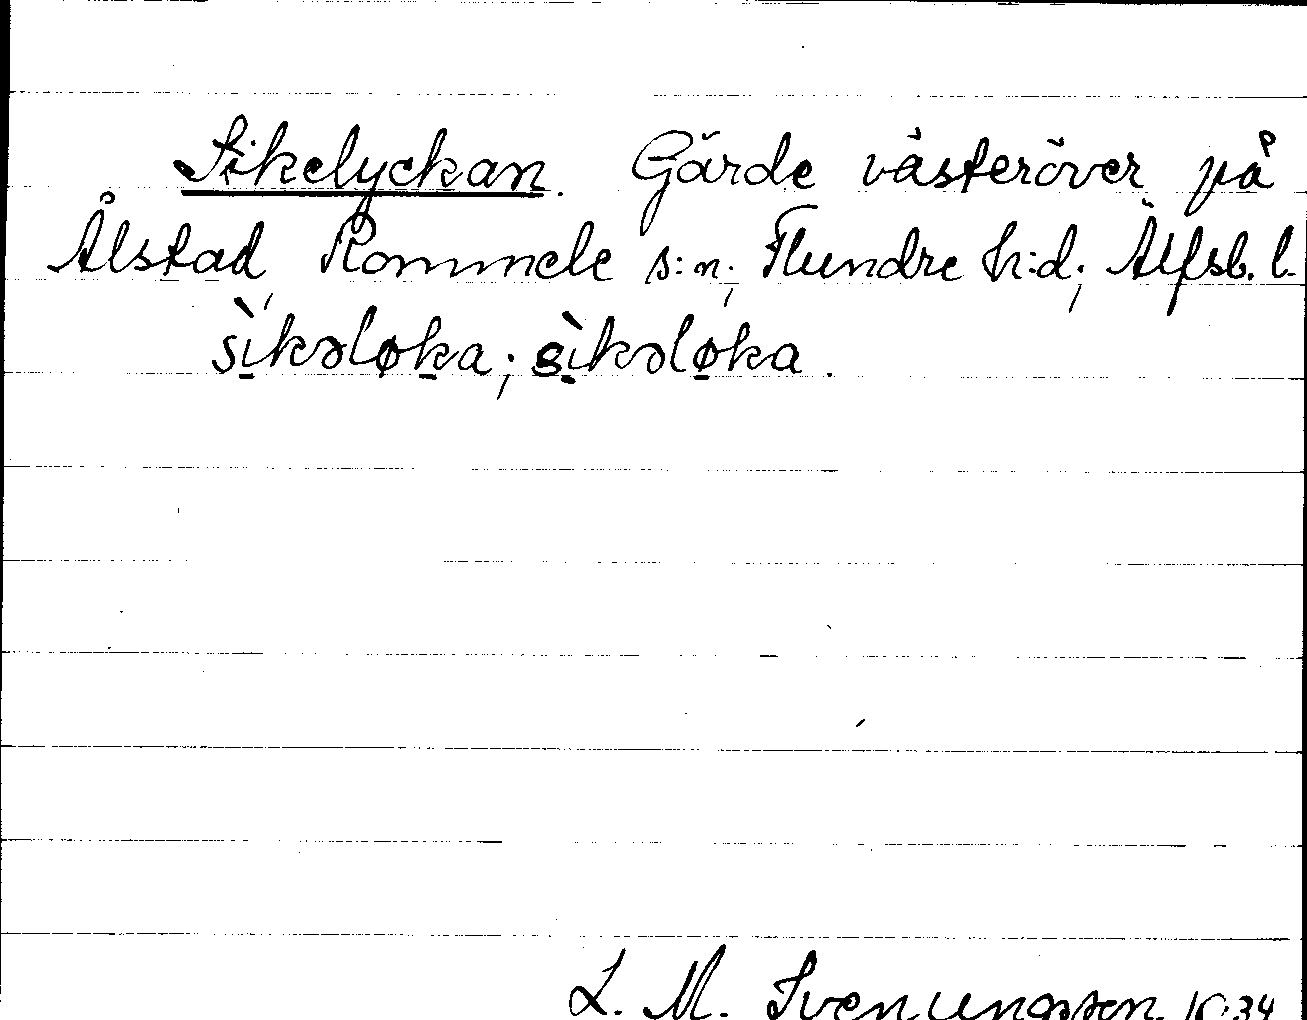 Sikelyckan. Gärde västeröver på
Ålstad, Rommele s:n; Flundre h:d; Älfsb. l.
sìkəløka; sìkəløka.
L. M. Svenungsson